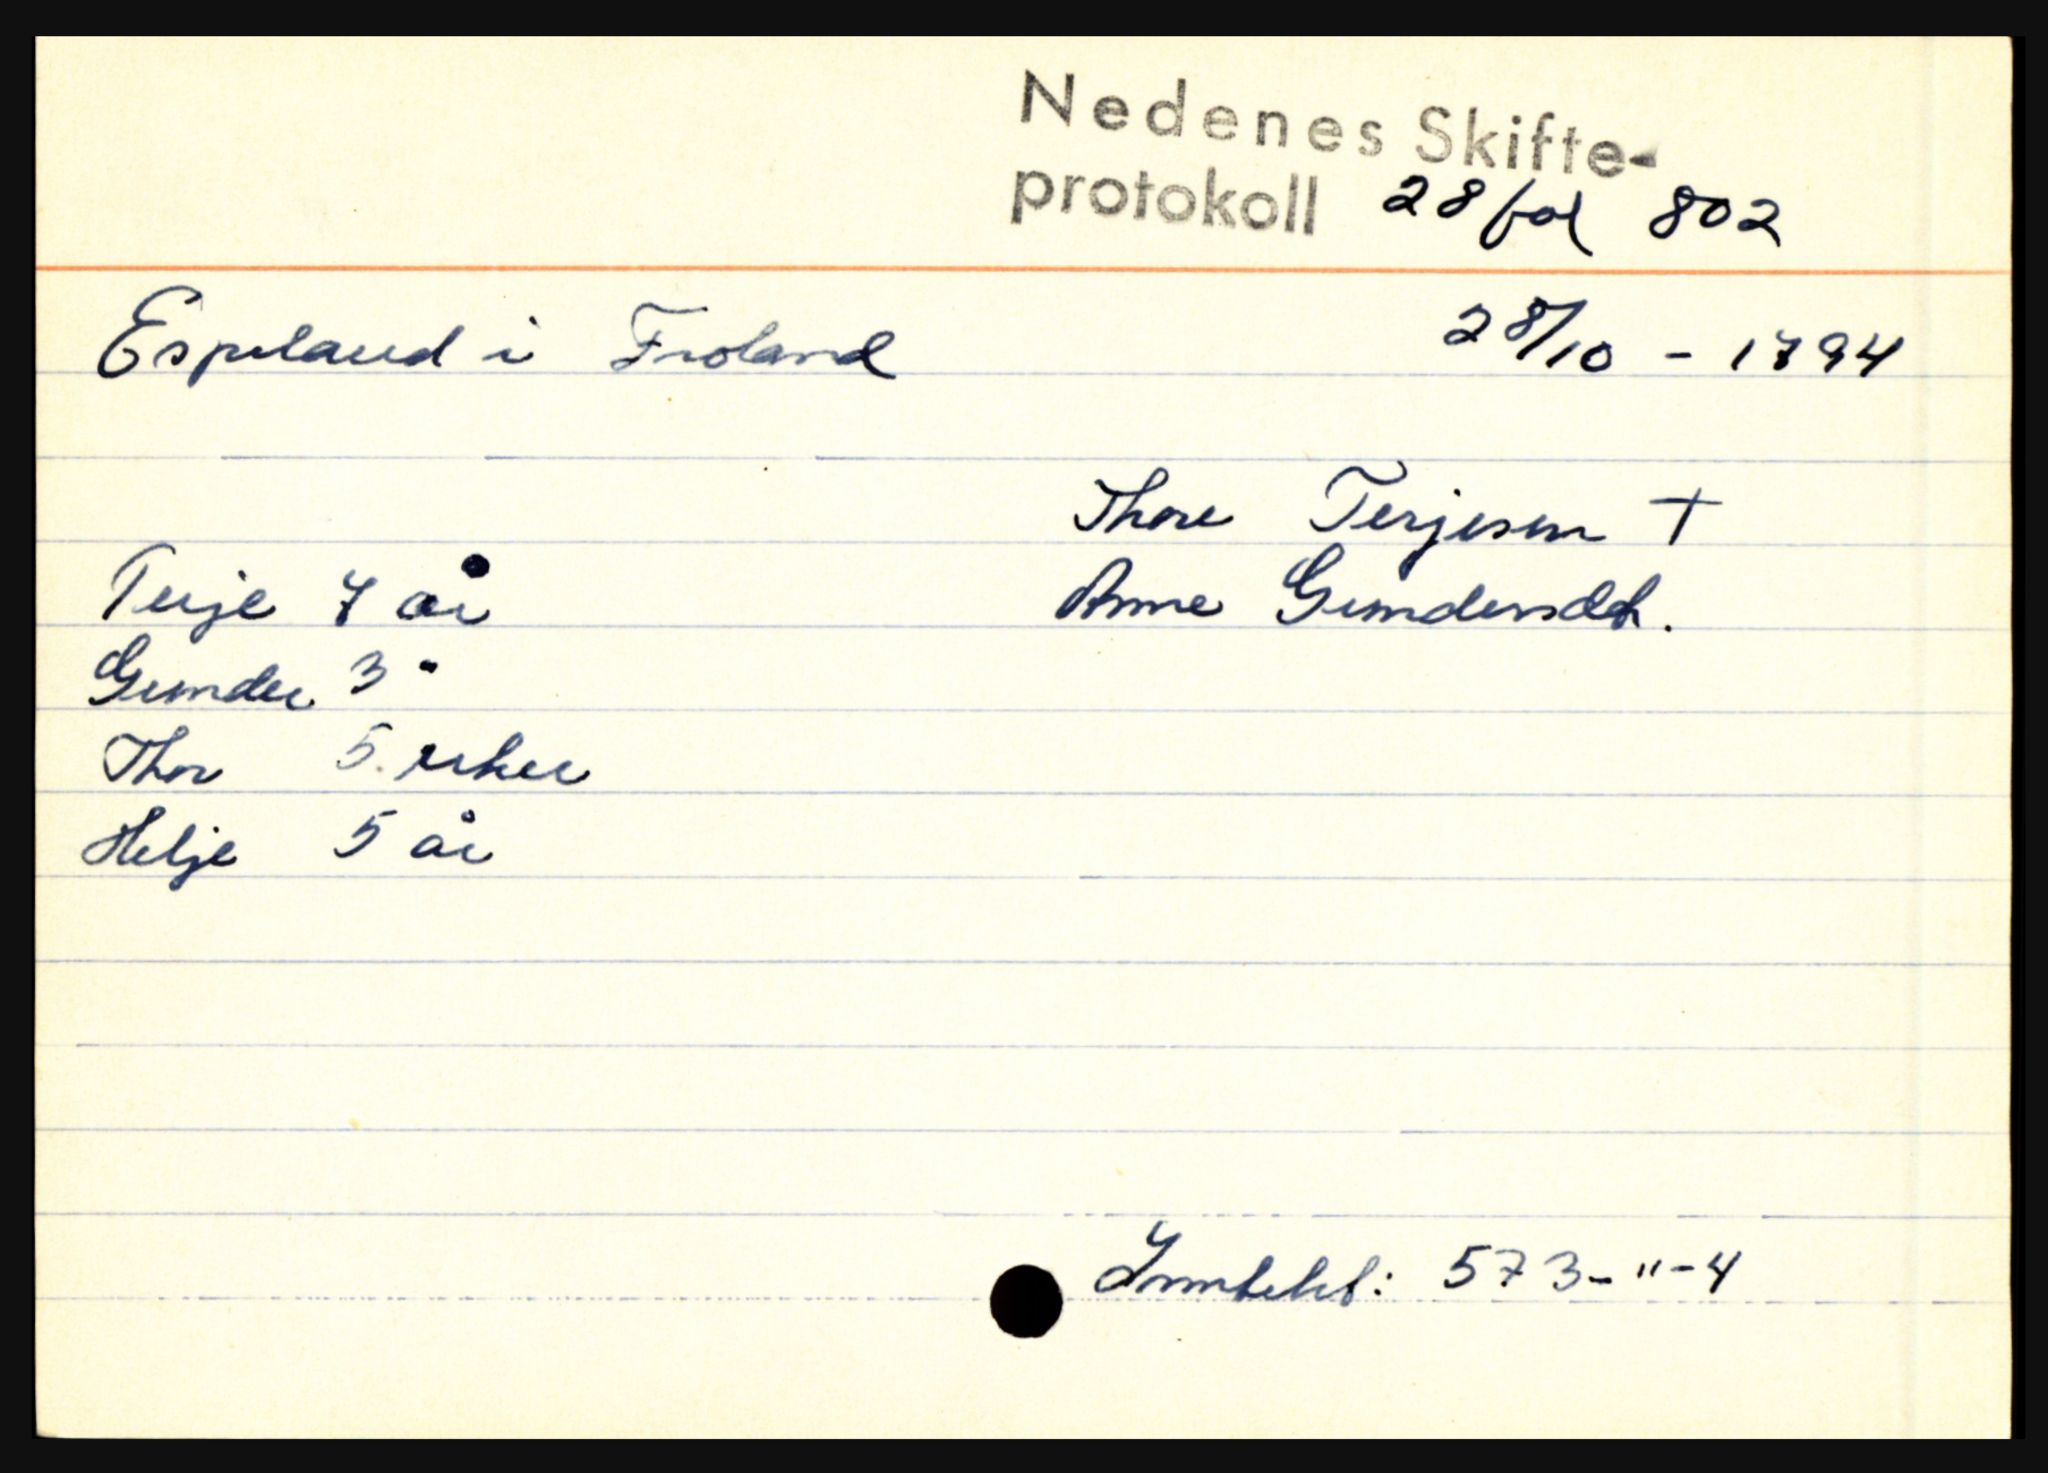 Nedenes Skifte-
protokoll 28 fol 802
Espeland i Froland 28/10 - 1794
Thore Terjesen +
Terje 7 år Anne Gundersdtr.
Gunder 3 "
Thor 5. uker
Helje 5 år
Inntekt: 573-"-4